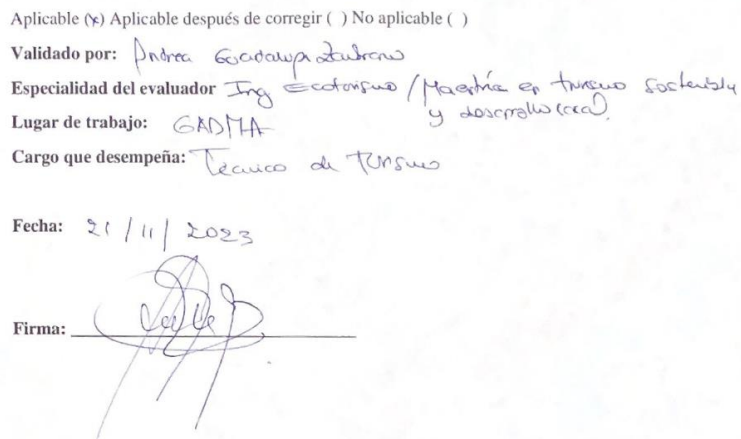 Aplicable (x) Aplicable después de corregir ( ) No aplicable ( )
Validado por: Andrea Guadalupe Zambrano
Especialidad del evaluador Ing Ecoturismo / Maestría en turismo sostenible
y desarrollo local.
Lugar de trabajo: GADMA
Cargo que desempeña: Técnico de Turismo
Fecha: 21 / 11 / 2023
Firma: